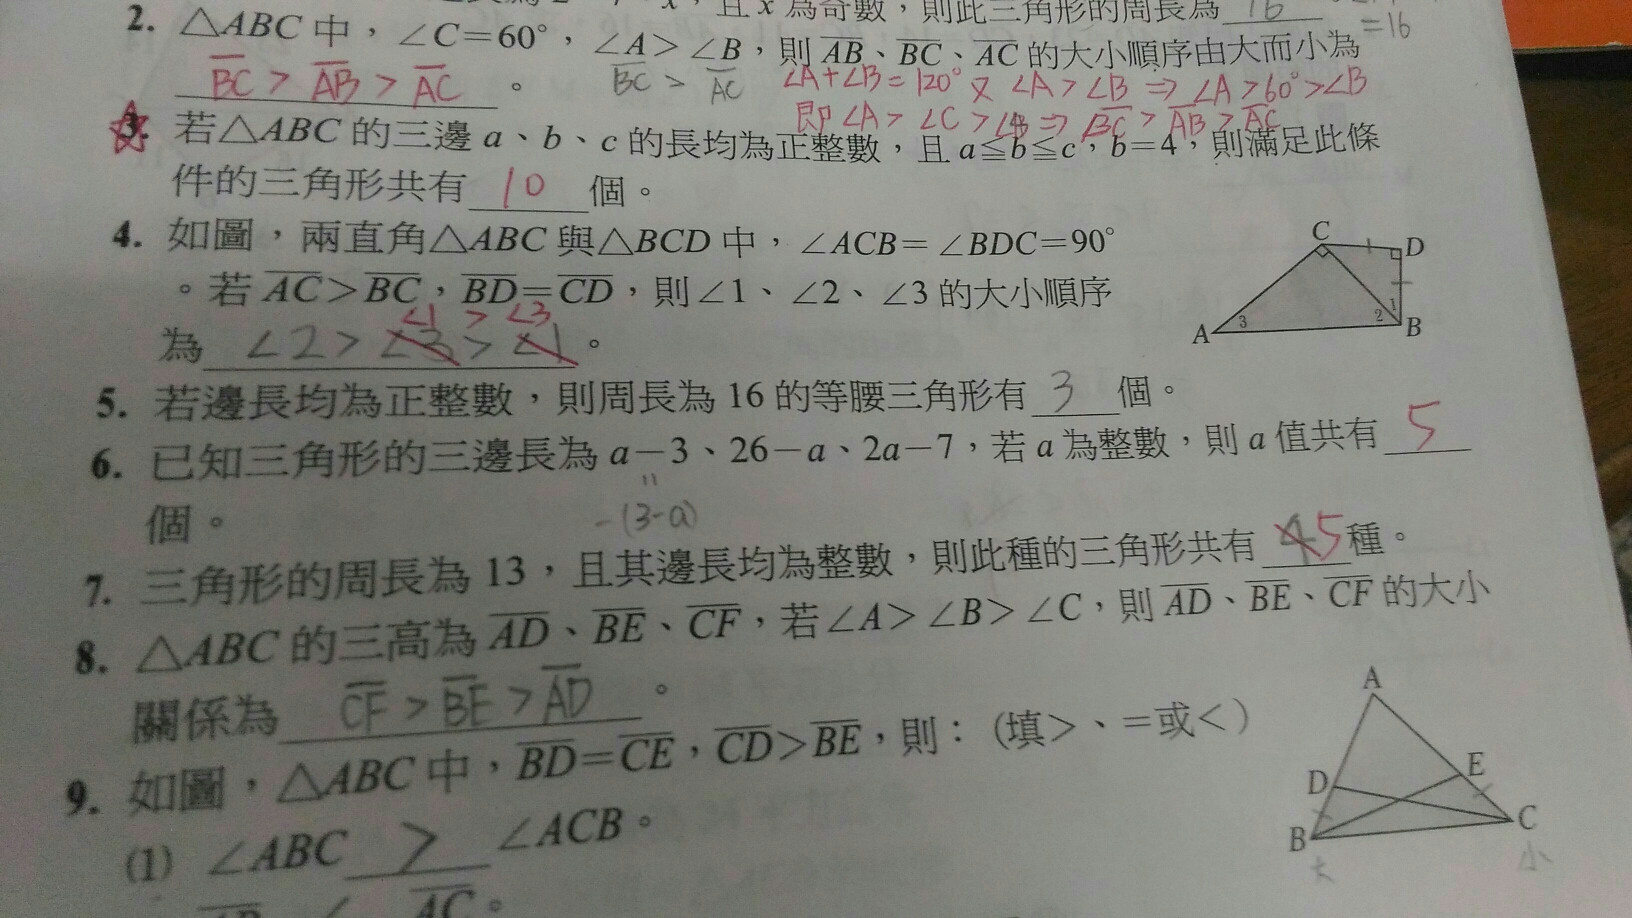 x,且x為奇數,則此三角形的周長為 16
=16
2. △ABC中,∠C=60°,∠A>∠B,則AB、BC、AC的大小順序由大而小為
BC>AB>AC。 BC>AC ∠A+∠B=120° 又∠A>∠B⇒∠A>60°>∠B
即∠A>∠C>∠B⇒BC>AB>AC
3. 若△ABC的三邊a、b、c的長均為正整數,且a≦b≦c,b=4,則滿足此條
件的三角形共有 10 個。
4. 如圖,兩直角△ABC與△BCD中,∠ACB=∠BDC=90°
。若AC>BC,BD=CD,則∠1、∠2、∠3的大小順序
∠1>∠3
為 ∠2>∠3>∠1。
C D
A 3 2 1 B
5. 若邊長均為正整數,則周長為16的等腰三角形有 3 個。
6. 已知三角形的三邊長為a-3、26-a、2a-7,若a為整數,則a值共有 5
個。 -(3-a)
7. 三角形的周長為13,且其邊長均為整數,則此種的三角形共有 4 5 種。
8. △ABC的三高為AD、BE、CF,若∠A>∠B>∠C,則AD、BE、CF的大小
關係為 CF>BE>AD。
9. 如圖,△ABC中,BD=CE,CD>BE,則:(填>、=或<)
(1) ∠ABC > ∠ACB。
A
D E
B C
大 小
AB < AC。